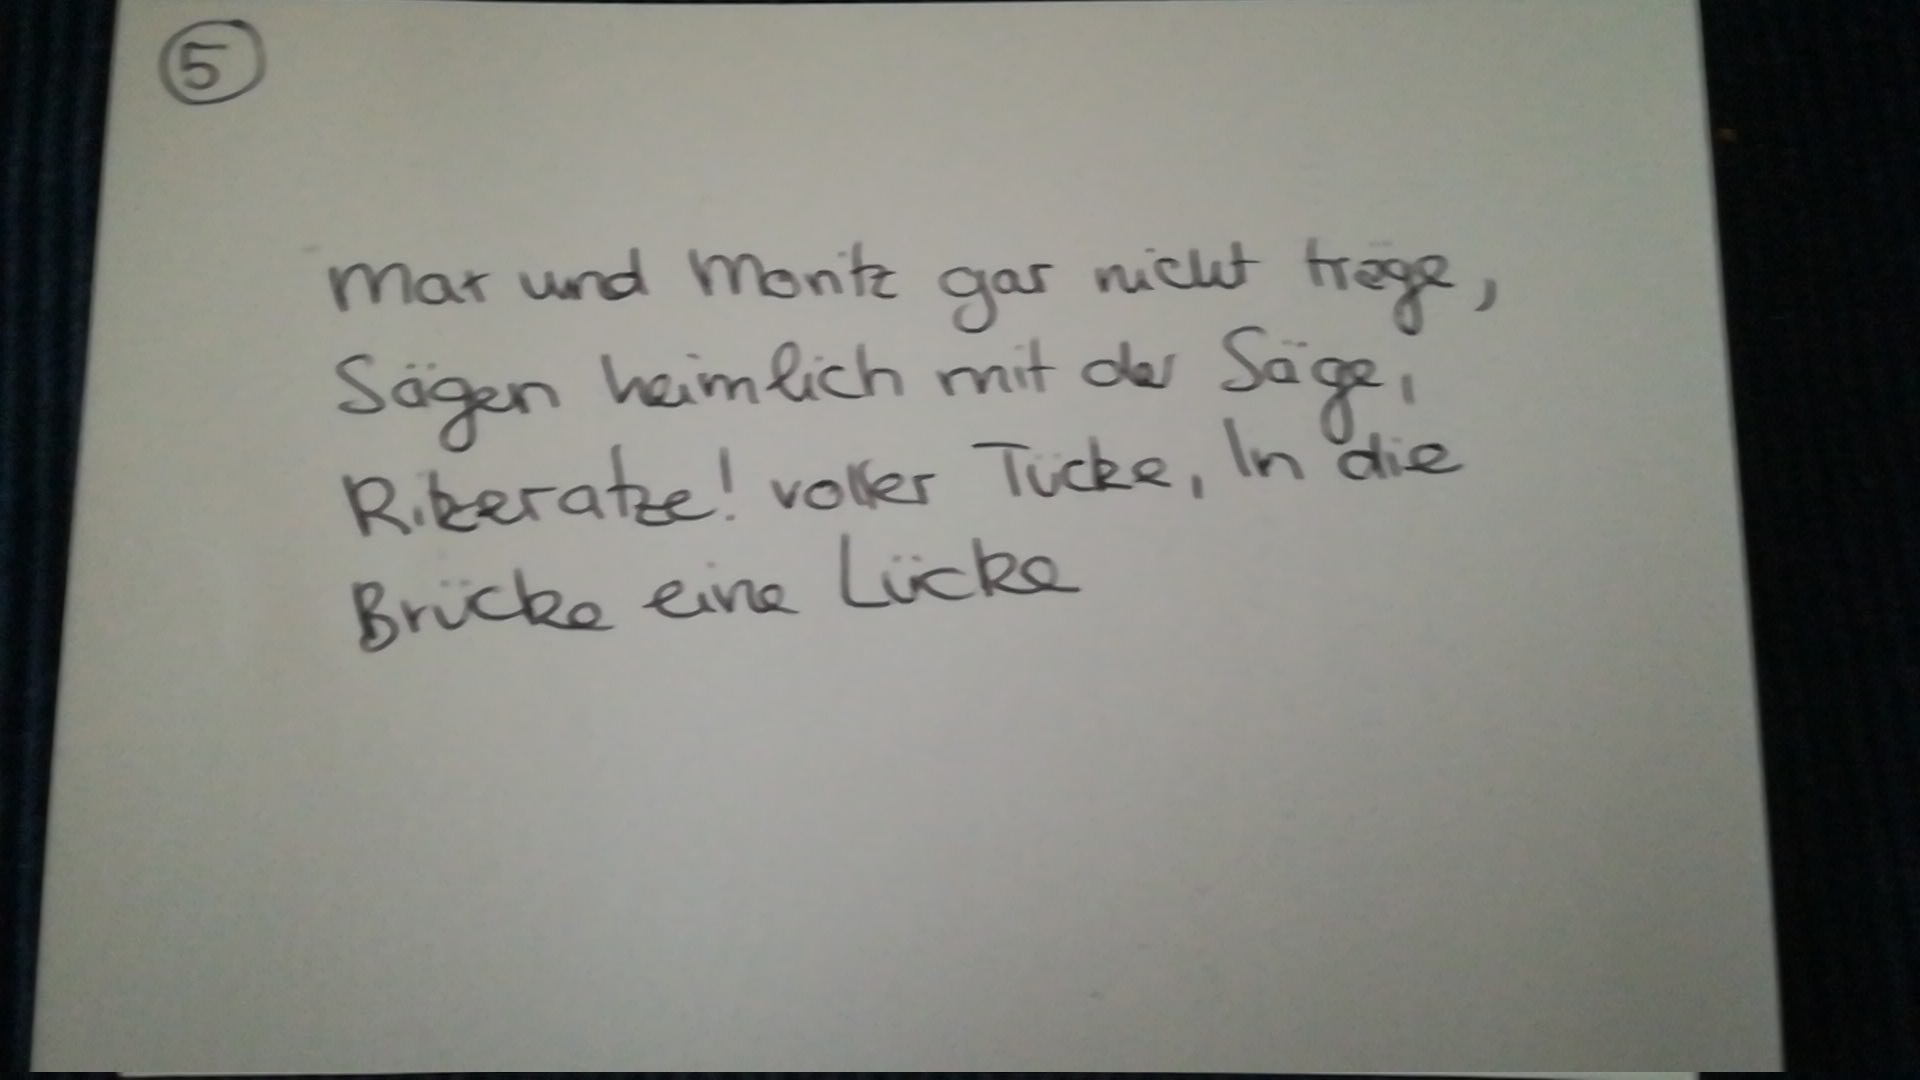 5
Max und Moritz gar nicht träge,
Sägen heimlich mit der Säge,
Ritzeratze! voller Tücke, In die
Brücke eine Lücke